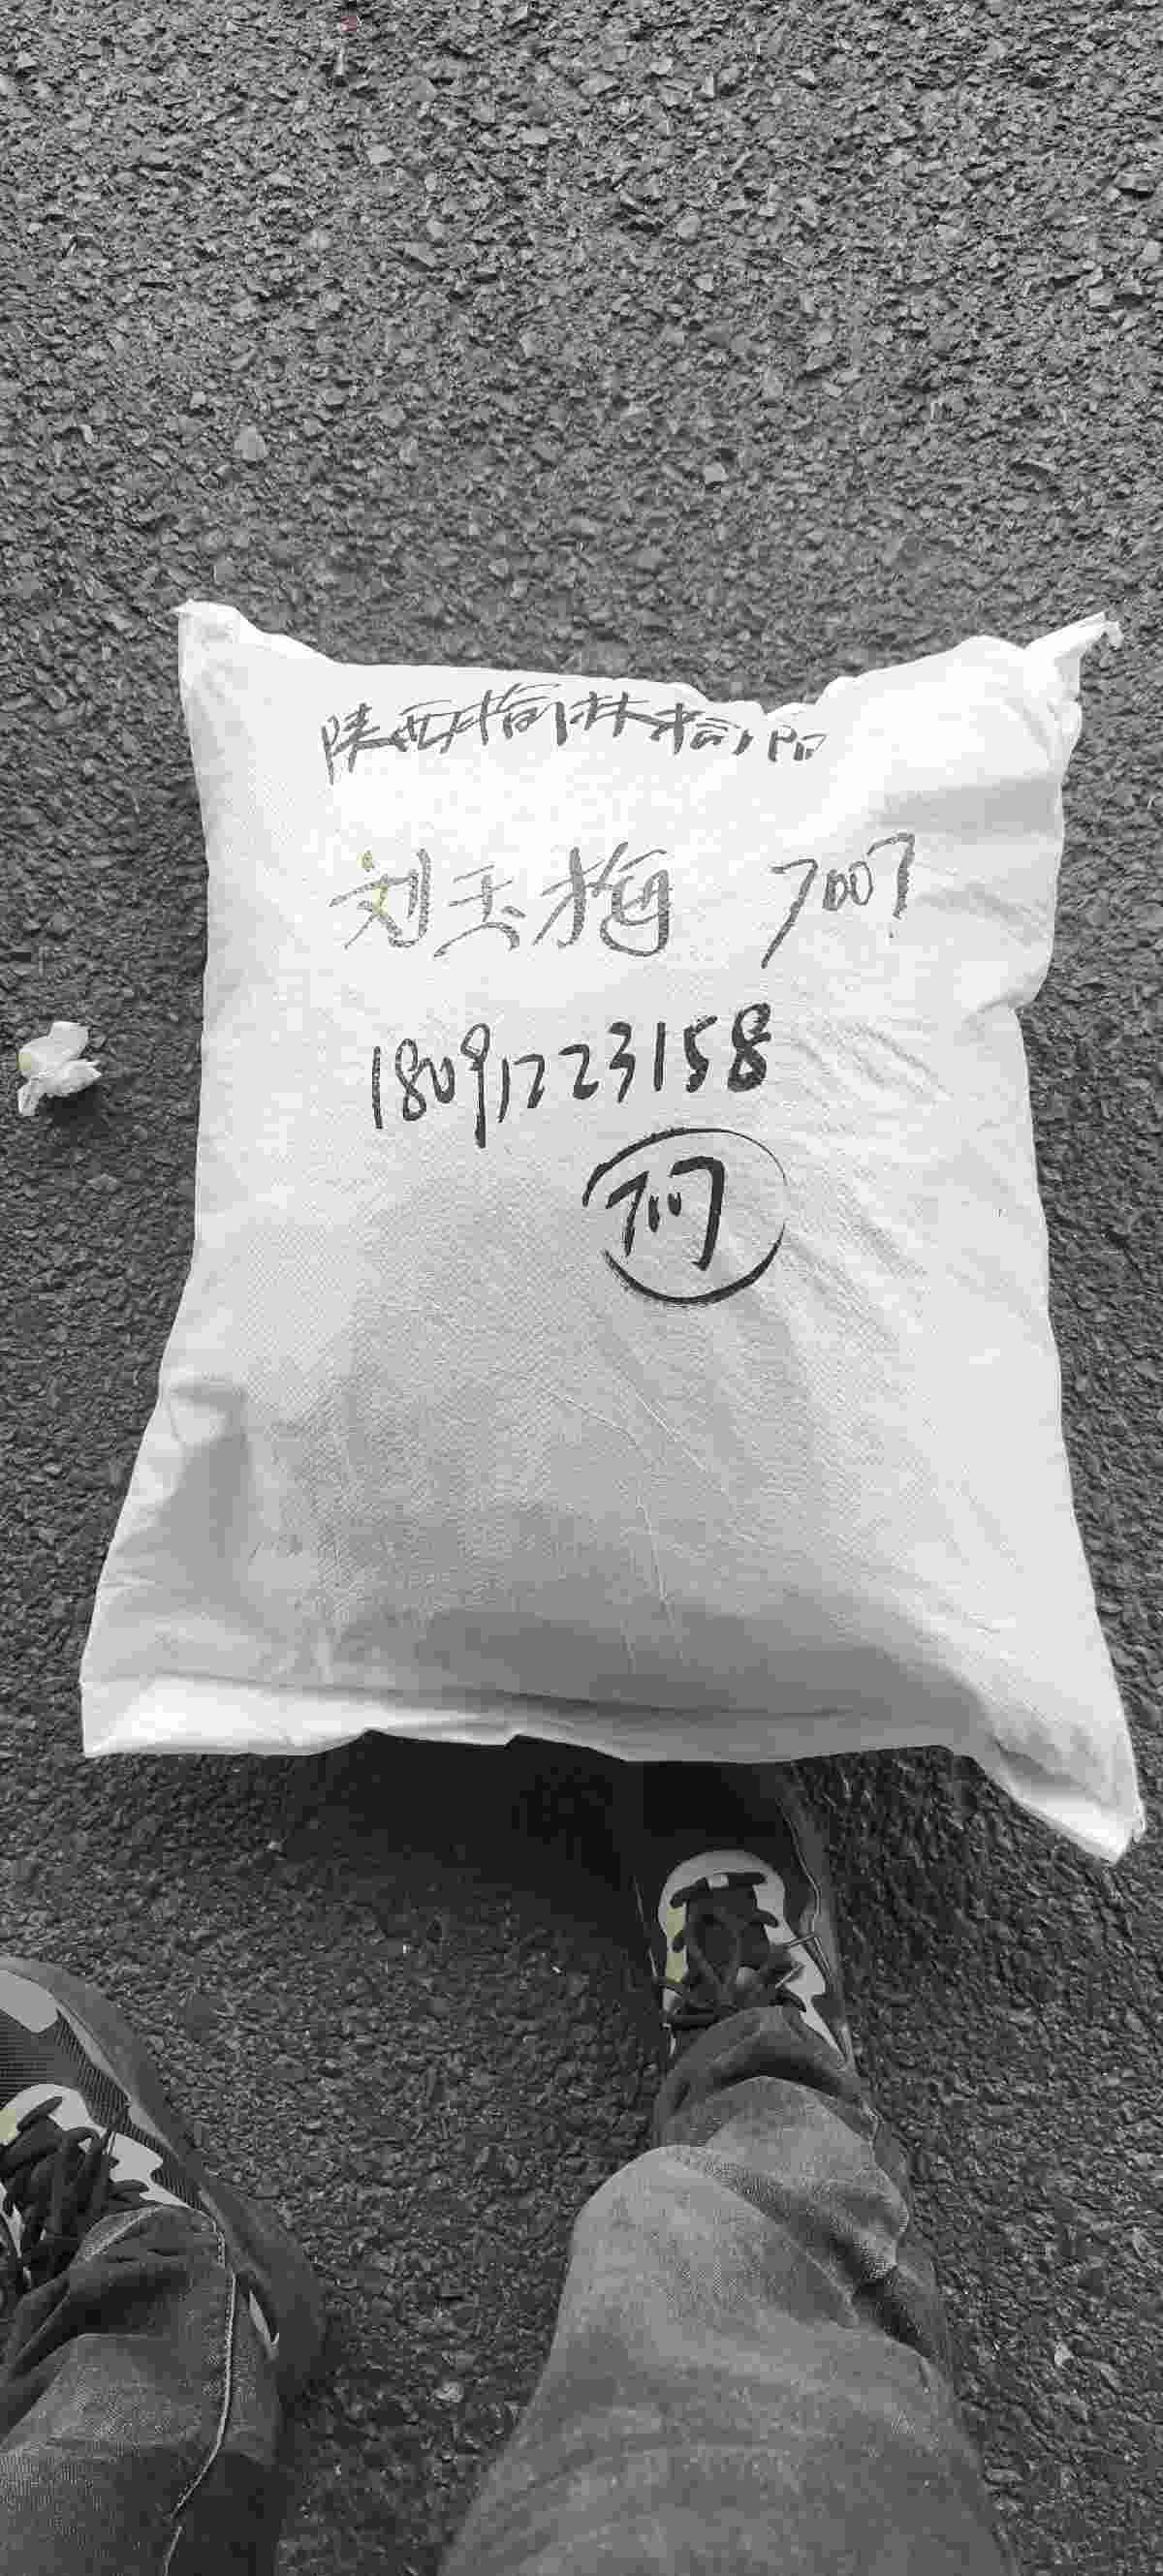 陕西榆林榆阳
刘玉梅 7007
18091223158
7007